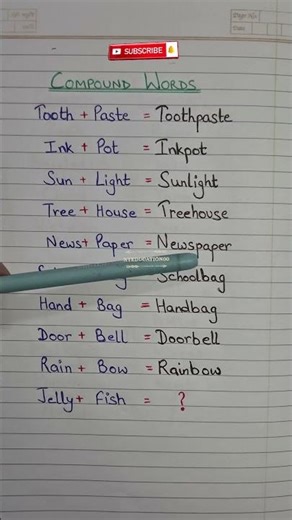 SUBSCRIBE
COMPOUND WORDS
Tooth + Paste = Toothpaste
Ink + Pot = Inkpot
Sun + Light = Sunlight
Tree + House = Treehouse
News + Paper = Newspaper
= Schoolbag
Hand + Bag = Handbag
Door + Bell = Doorbell
Rain + Bow = Rainbow
Jelly + Fish = ?